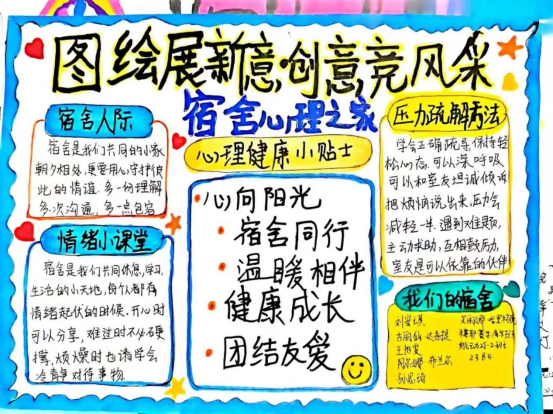 图绘展新意·创意竞风采
宿舍心理之家
宿舍人际
宿舍是我们共同的小家
朝夕相处,更要用心守护彼
此的情谊.多一份理解
多一次沟通,多一点包容
情绪小课堂
宿舍是我们共同休息,学习,
生活的小天地,每个人都有
情绪起伏的时候,开心时
可以分享,难过时不必硬
撑,烦燥时也请学会
冷静对待事物
心理健康小贴士
心向阳光
宿舍同行
温暖相伴
健康成长
团结友爱
压力疏解方法
学会正确疏导,保持轻
松心态,可以深呼吸
可以和室友坦诚倾诉
把烦恼说出来,压力会
减轻一半.遇到难题,
主动求助,互相鼓励,
室友是可以依靠的伙伴
我们的宿舍
2384